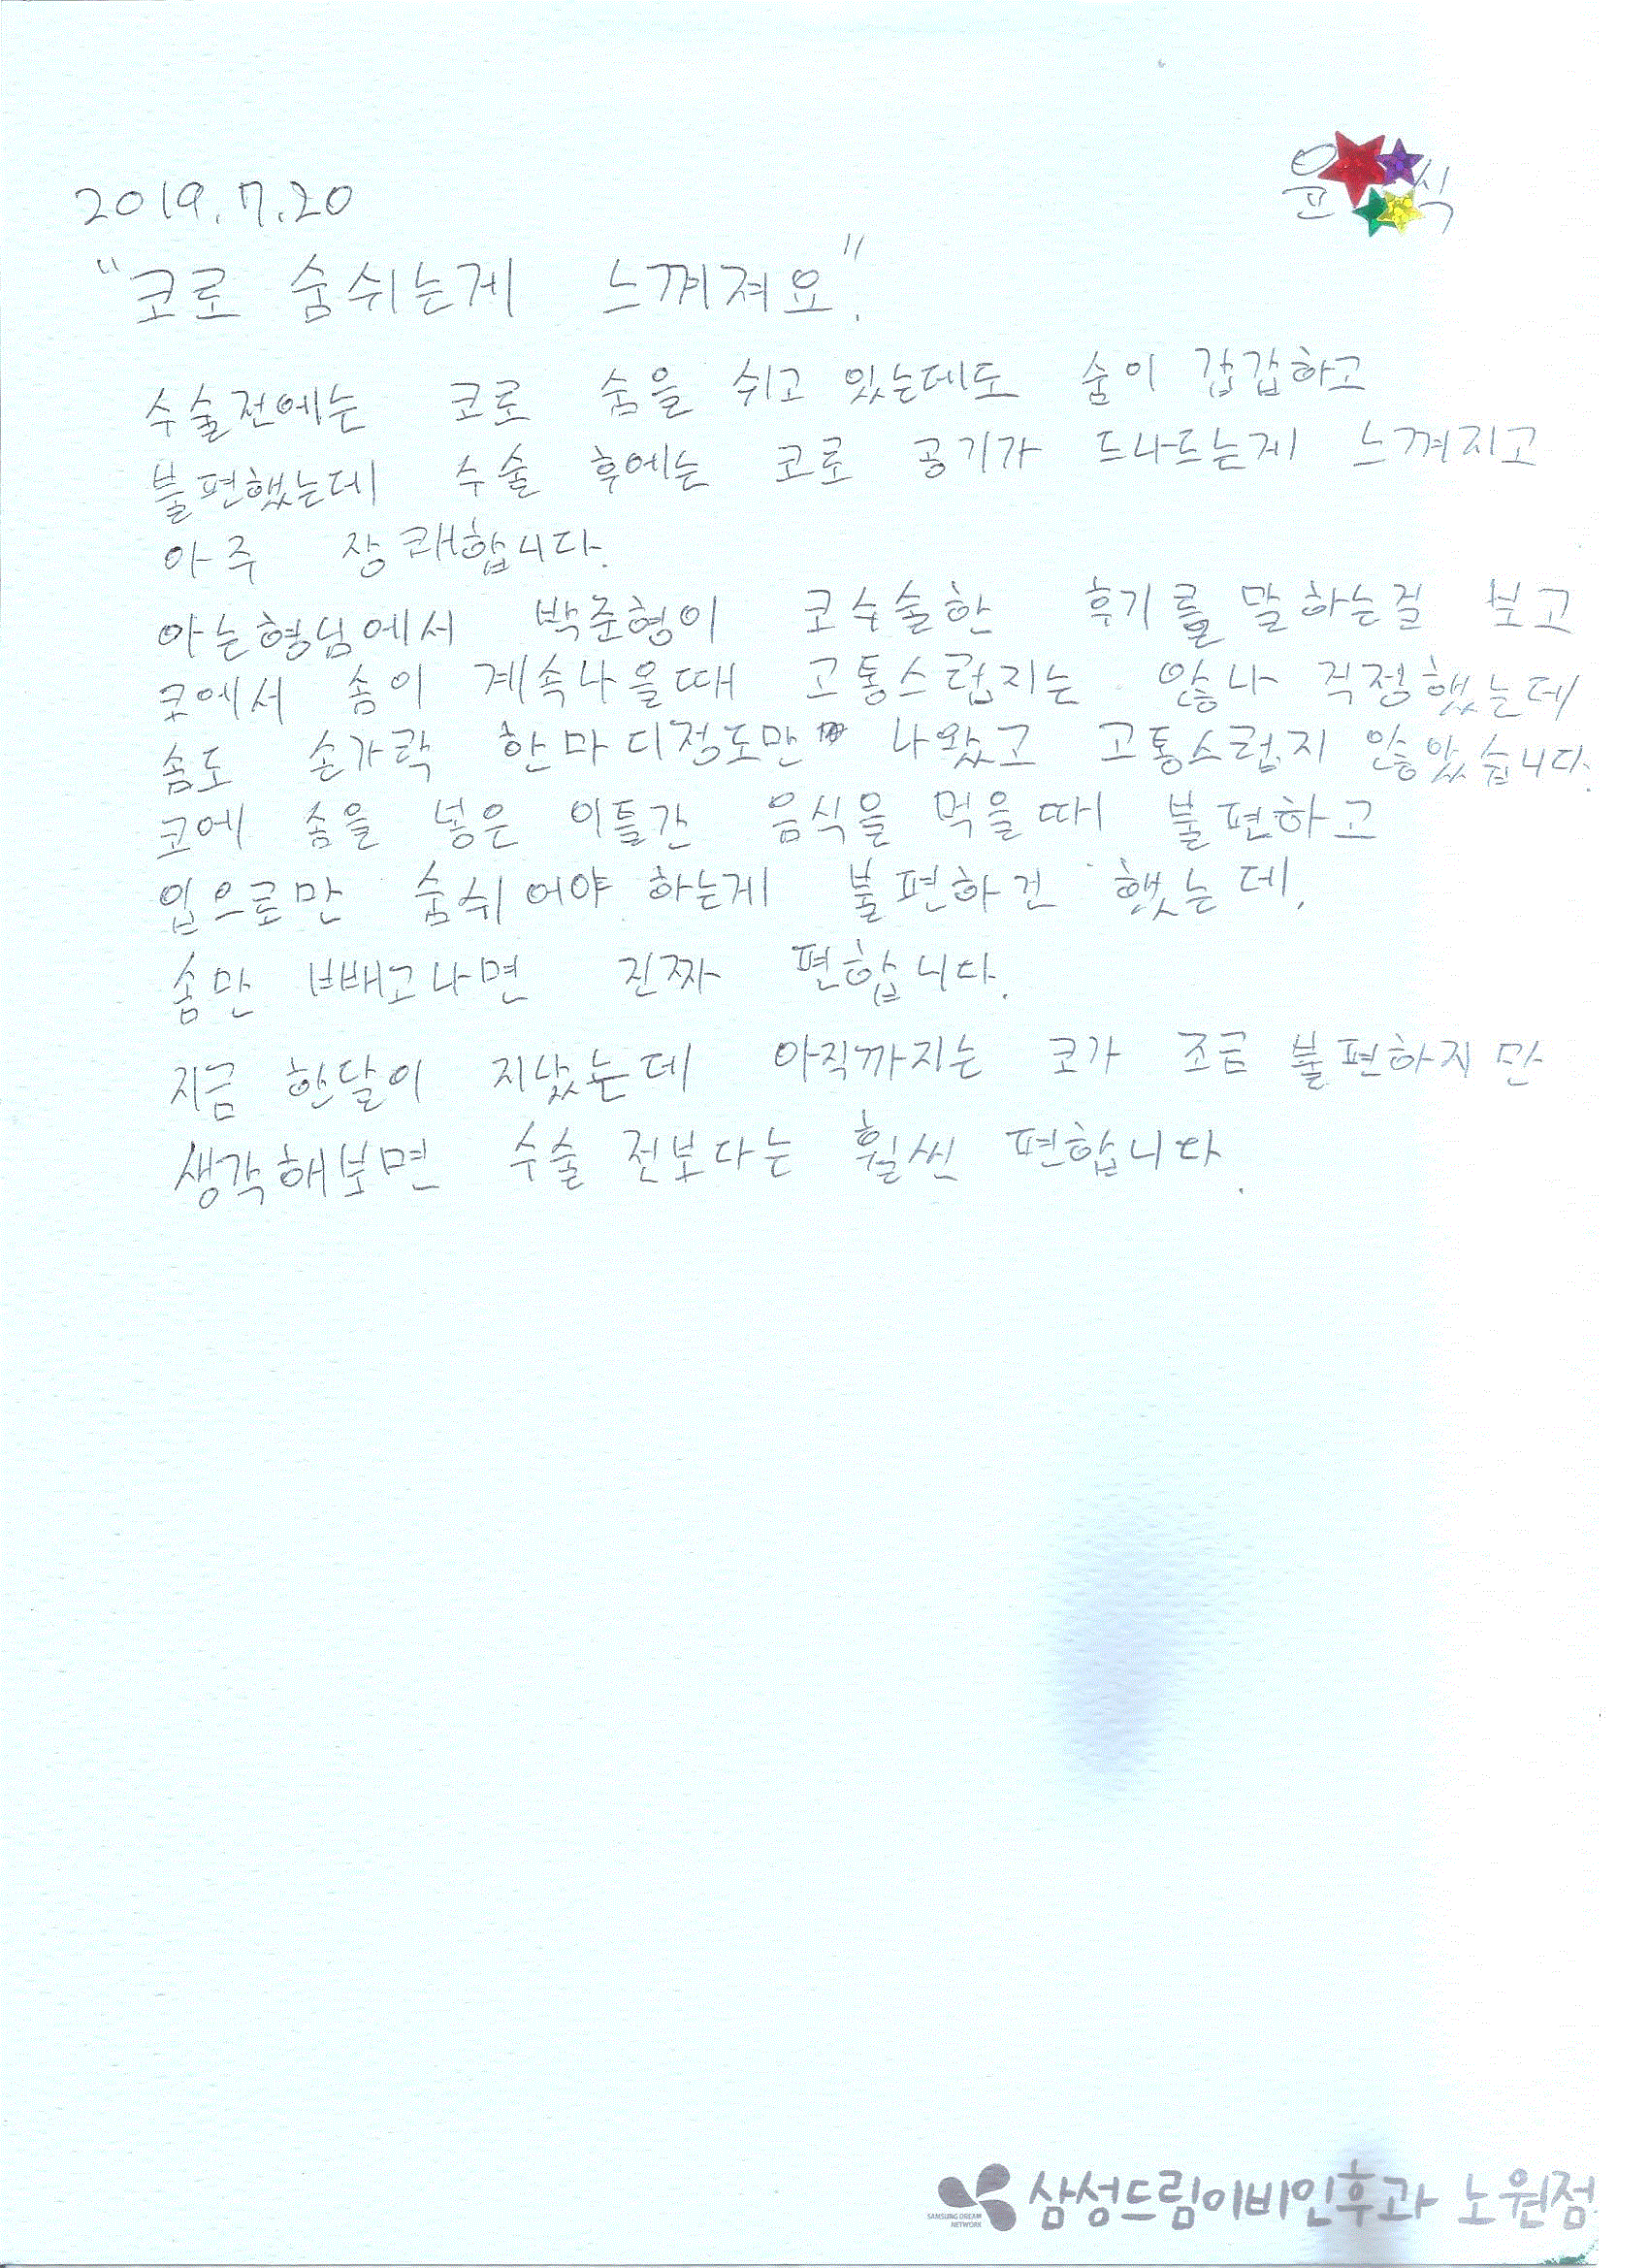 윤 식
2019.7.20
"코로 숨쉬는게 느껴져요".
수술전에는 코로 숨을 쉬고 있는데도 숨이 갑갑하고
불편했는데 수술 후에는 코로 공기가 드나드는게 느껴지고
아주 상쾌합니다.
아는형님에서 박준형이 코수술한 후기를 말하는걸 보고
코에서 솜이 계속나올때 고통스럽지는 않나 걱정했는데
솜도 손가락 한마디정도만 나왔고 고통스럽지 않았습니다.
코에 솜을 넣은 이틀간 음식을 먹을때 불편하고
입으로만 숨쉬어야 하는게 불편하긴 했는데,
솜만 빼고나면 진짜 편합니다.
지금 한달이 지났는데 아직까지는 코가 조금 불편하지만
생각해보면 수술 전보다는 훨씬 편합니다.
SAMSUNG DREAM
NETWORK
삼성드림이비인후과 노원점